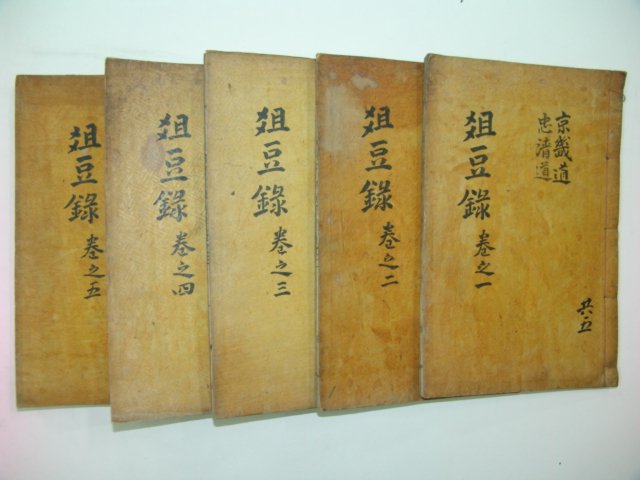 京畿道
忠清道
俎豆錄 卷之一
共五
俎豆錄 卷之二
俎豆錄 卷之三
俎豆錄 卷之四
俎豆錄 卷之五